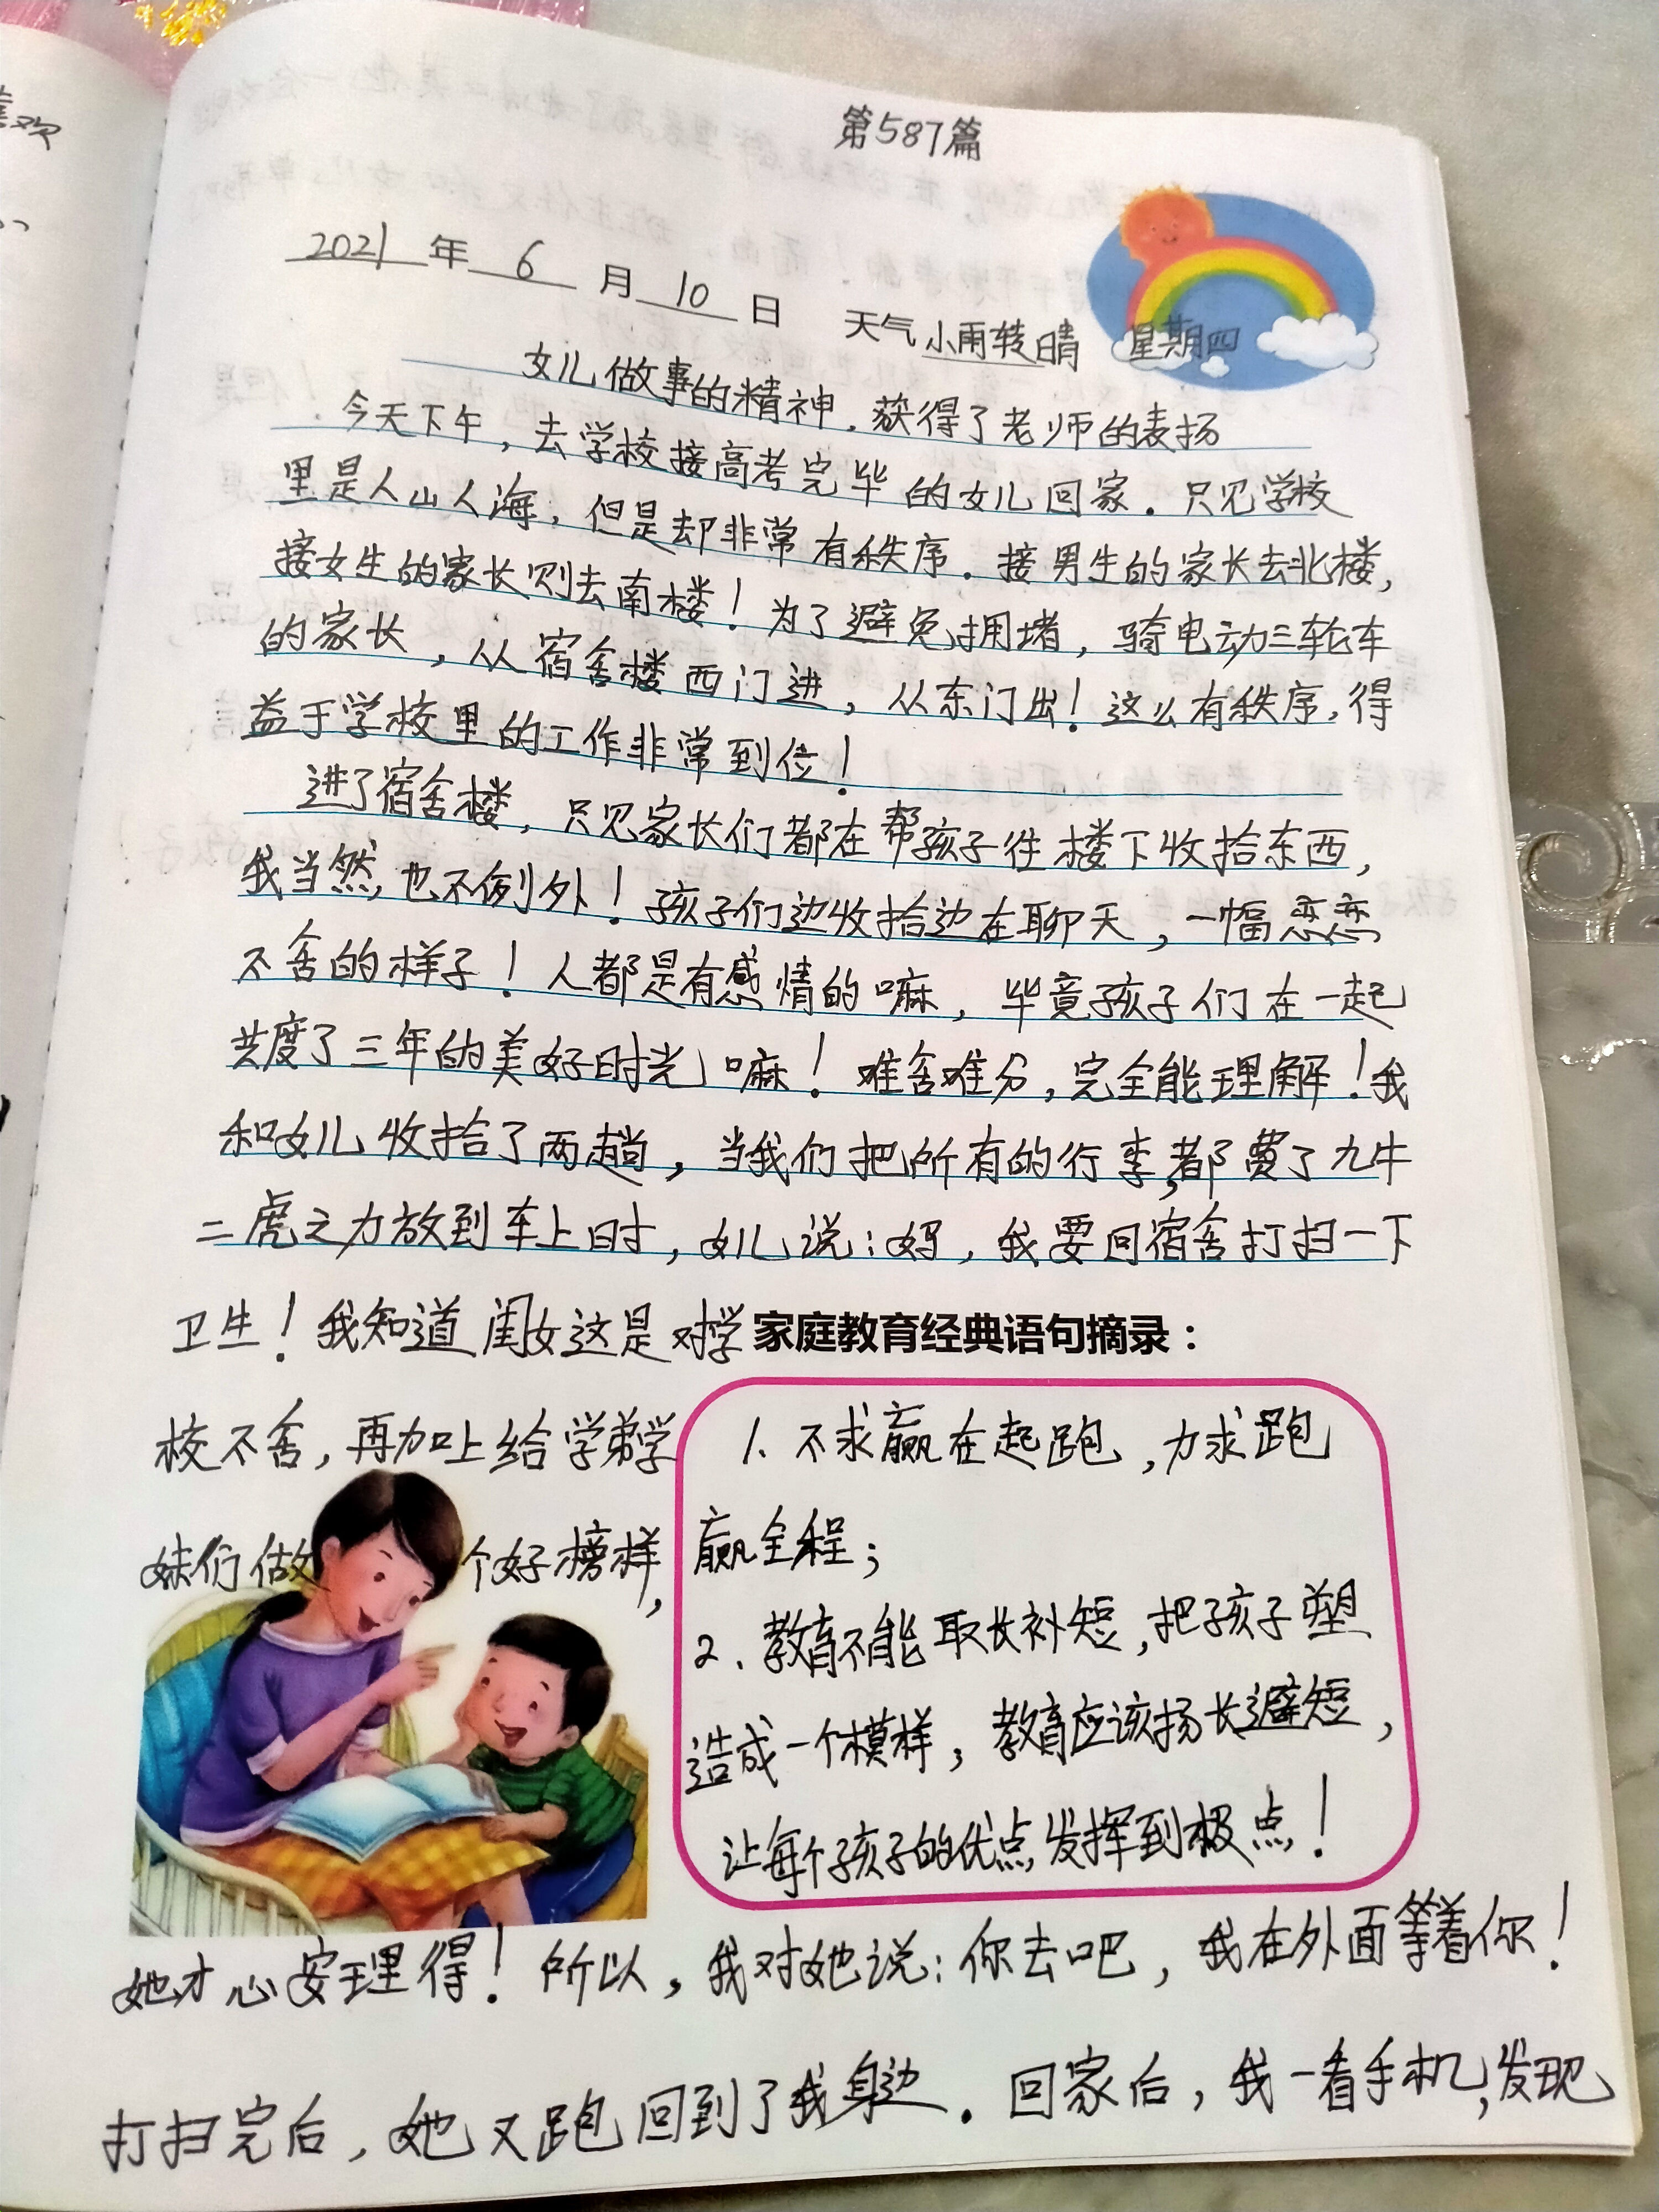 喜欢
第587篇
2021年6月10日 天气小雨转晴 星期四
女儿做事的精神.获得了老师的表扬
今天下午，去学校接高考完毕的女儿回家．只见学校
里是人山人海，但是却非常有秩序．接男生的家长去北楼，
接女生的家长则去南楼！为了避免拥堵，骑电动三轮车
的家长，从宿舍楼西门进，从东门出！这么有秩序，得
益于学校里的工作非常到位！
进了宿舍楼，只见家长们都在帮孩子往楼下收拾东西，
我当然，也不例外！孩子们边收拾边在聊天，一幅恋恋
不舍的样子！人都是有感情的嘛，毕竟孩子们在一起
共度了三年的美好时光嘛！难舍难分，完全能理解！我
和女儿收拾了两趟，当我们把所有的行李，都费了九牛
二虎之力放到车上时，女儿说：妈，我要回宿舍打扫一下
卫生！我知道闺女这是对学
校不舍，再加上给学弟学
妹们做个好榜样，
家庭教育经典语句摘录：
1、不求赢在起跑，力求跑
赢全程；
2、教育不能取长补短，把孩子塑
造成一个模样，教育应该扬长避短，
让每个孩子的优点发挥到极点！
她才心安理得！所以，我对她说：你去吧，我在外面等着你！
打扫完后，她又跑回到了我身边．回家后，我一看手机，发现